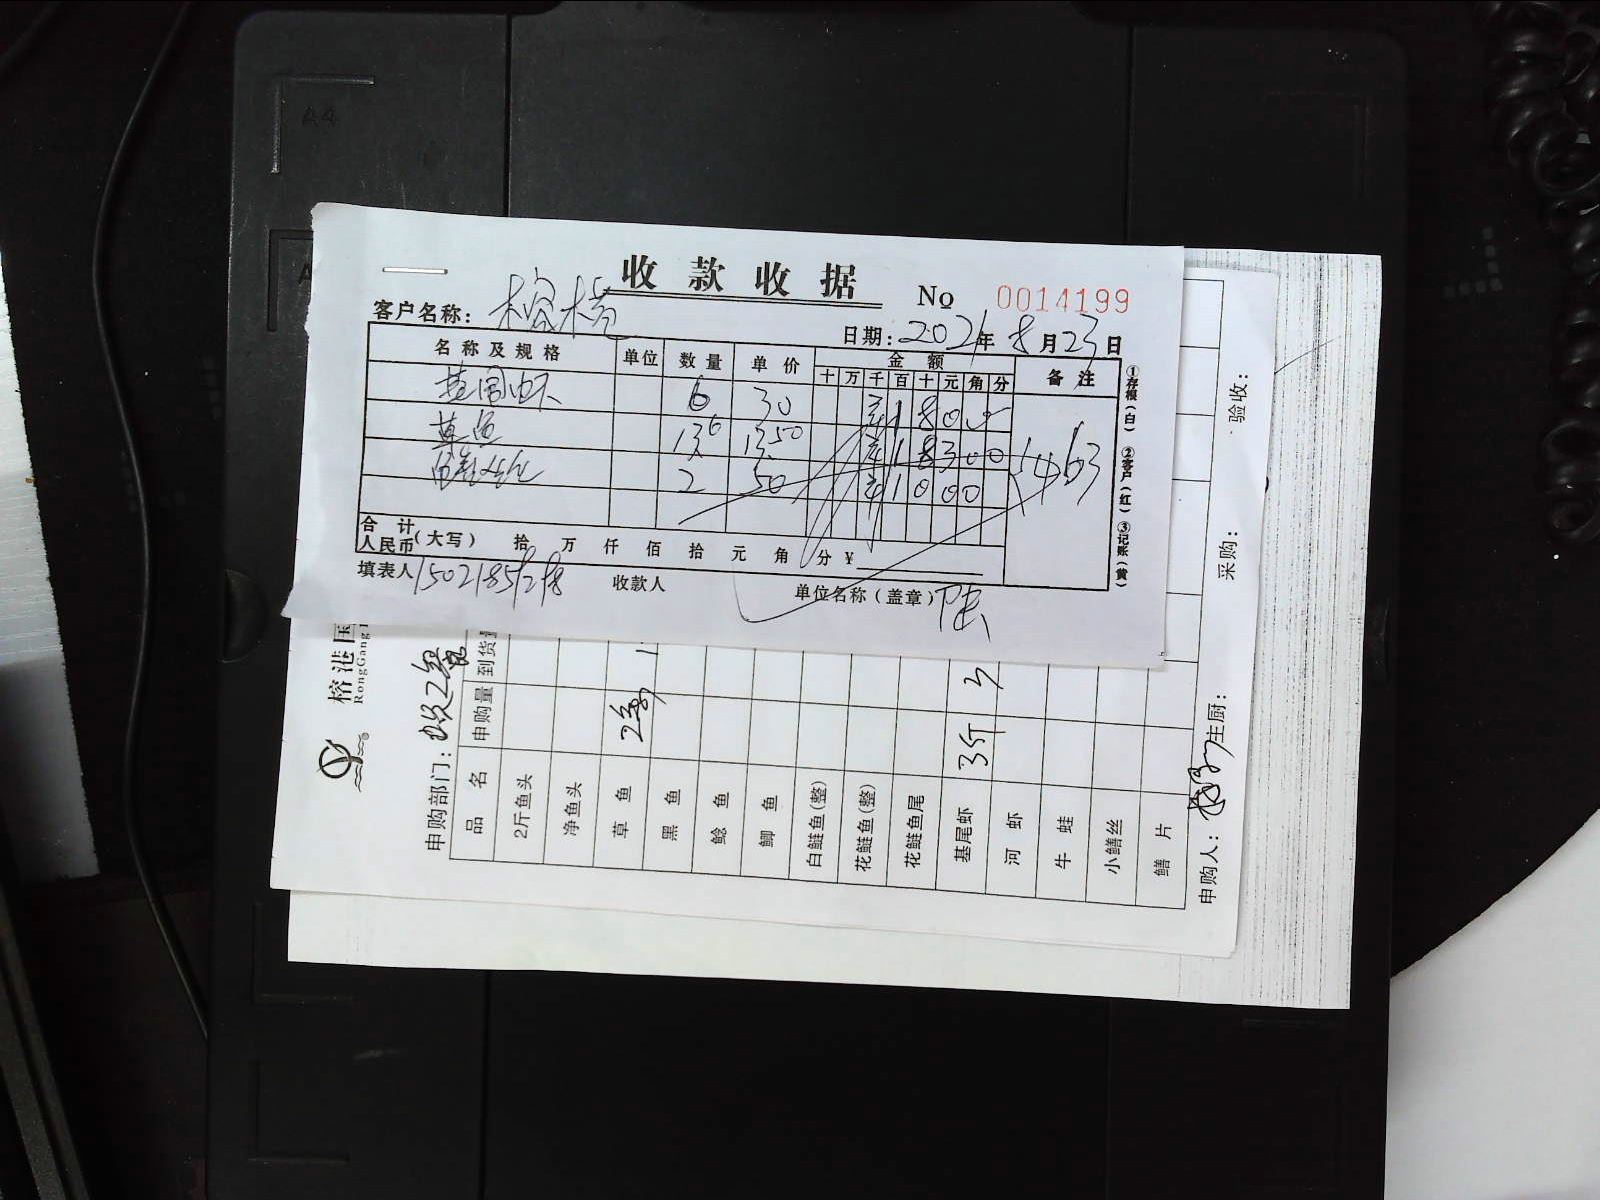 A4
收款收据
No 0014199
客户名称: 榕楼
日期: 2021年8月23日
名称及规格 单位 数量 单价 金额 备注
十 万 千 百 十 元 角 分
6 30 1 8 0
草鱼 13.6 13.50 1 8 3 0 0
2 50 1 0 0 0 0
463
合计人民币(大写) 拾 万 仟 佰 拾 元 角 分 ¥
填表人 收款人 单位名称(盖章)
①存根(白) ②客户(红) ③记账(黄)
榕港国
RongGang
申购部门:
品名 申购量 到货量
2斤鱼头
净鱼头
草鱼 2条
黑鱼
鲶鱼
鲫鱼
白鲢鱼(整)
花鲢鱼(整)
花鲢鱼尾
基尾虾 3斤 3
河虾
牛蛙
小鳝丝
鳝片
申购人: 主厨: 采购: 验收: